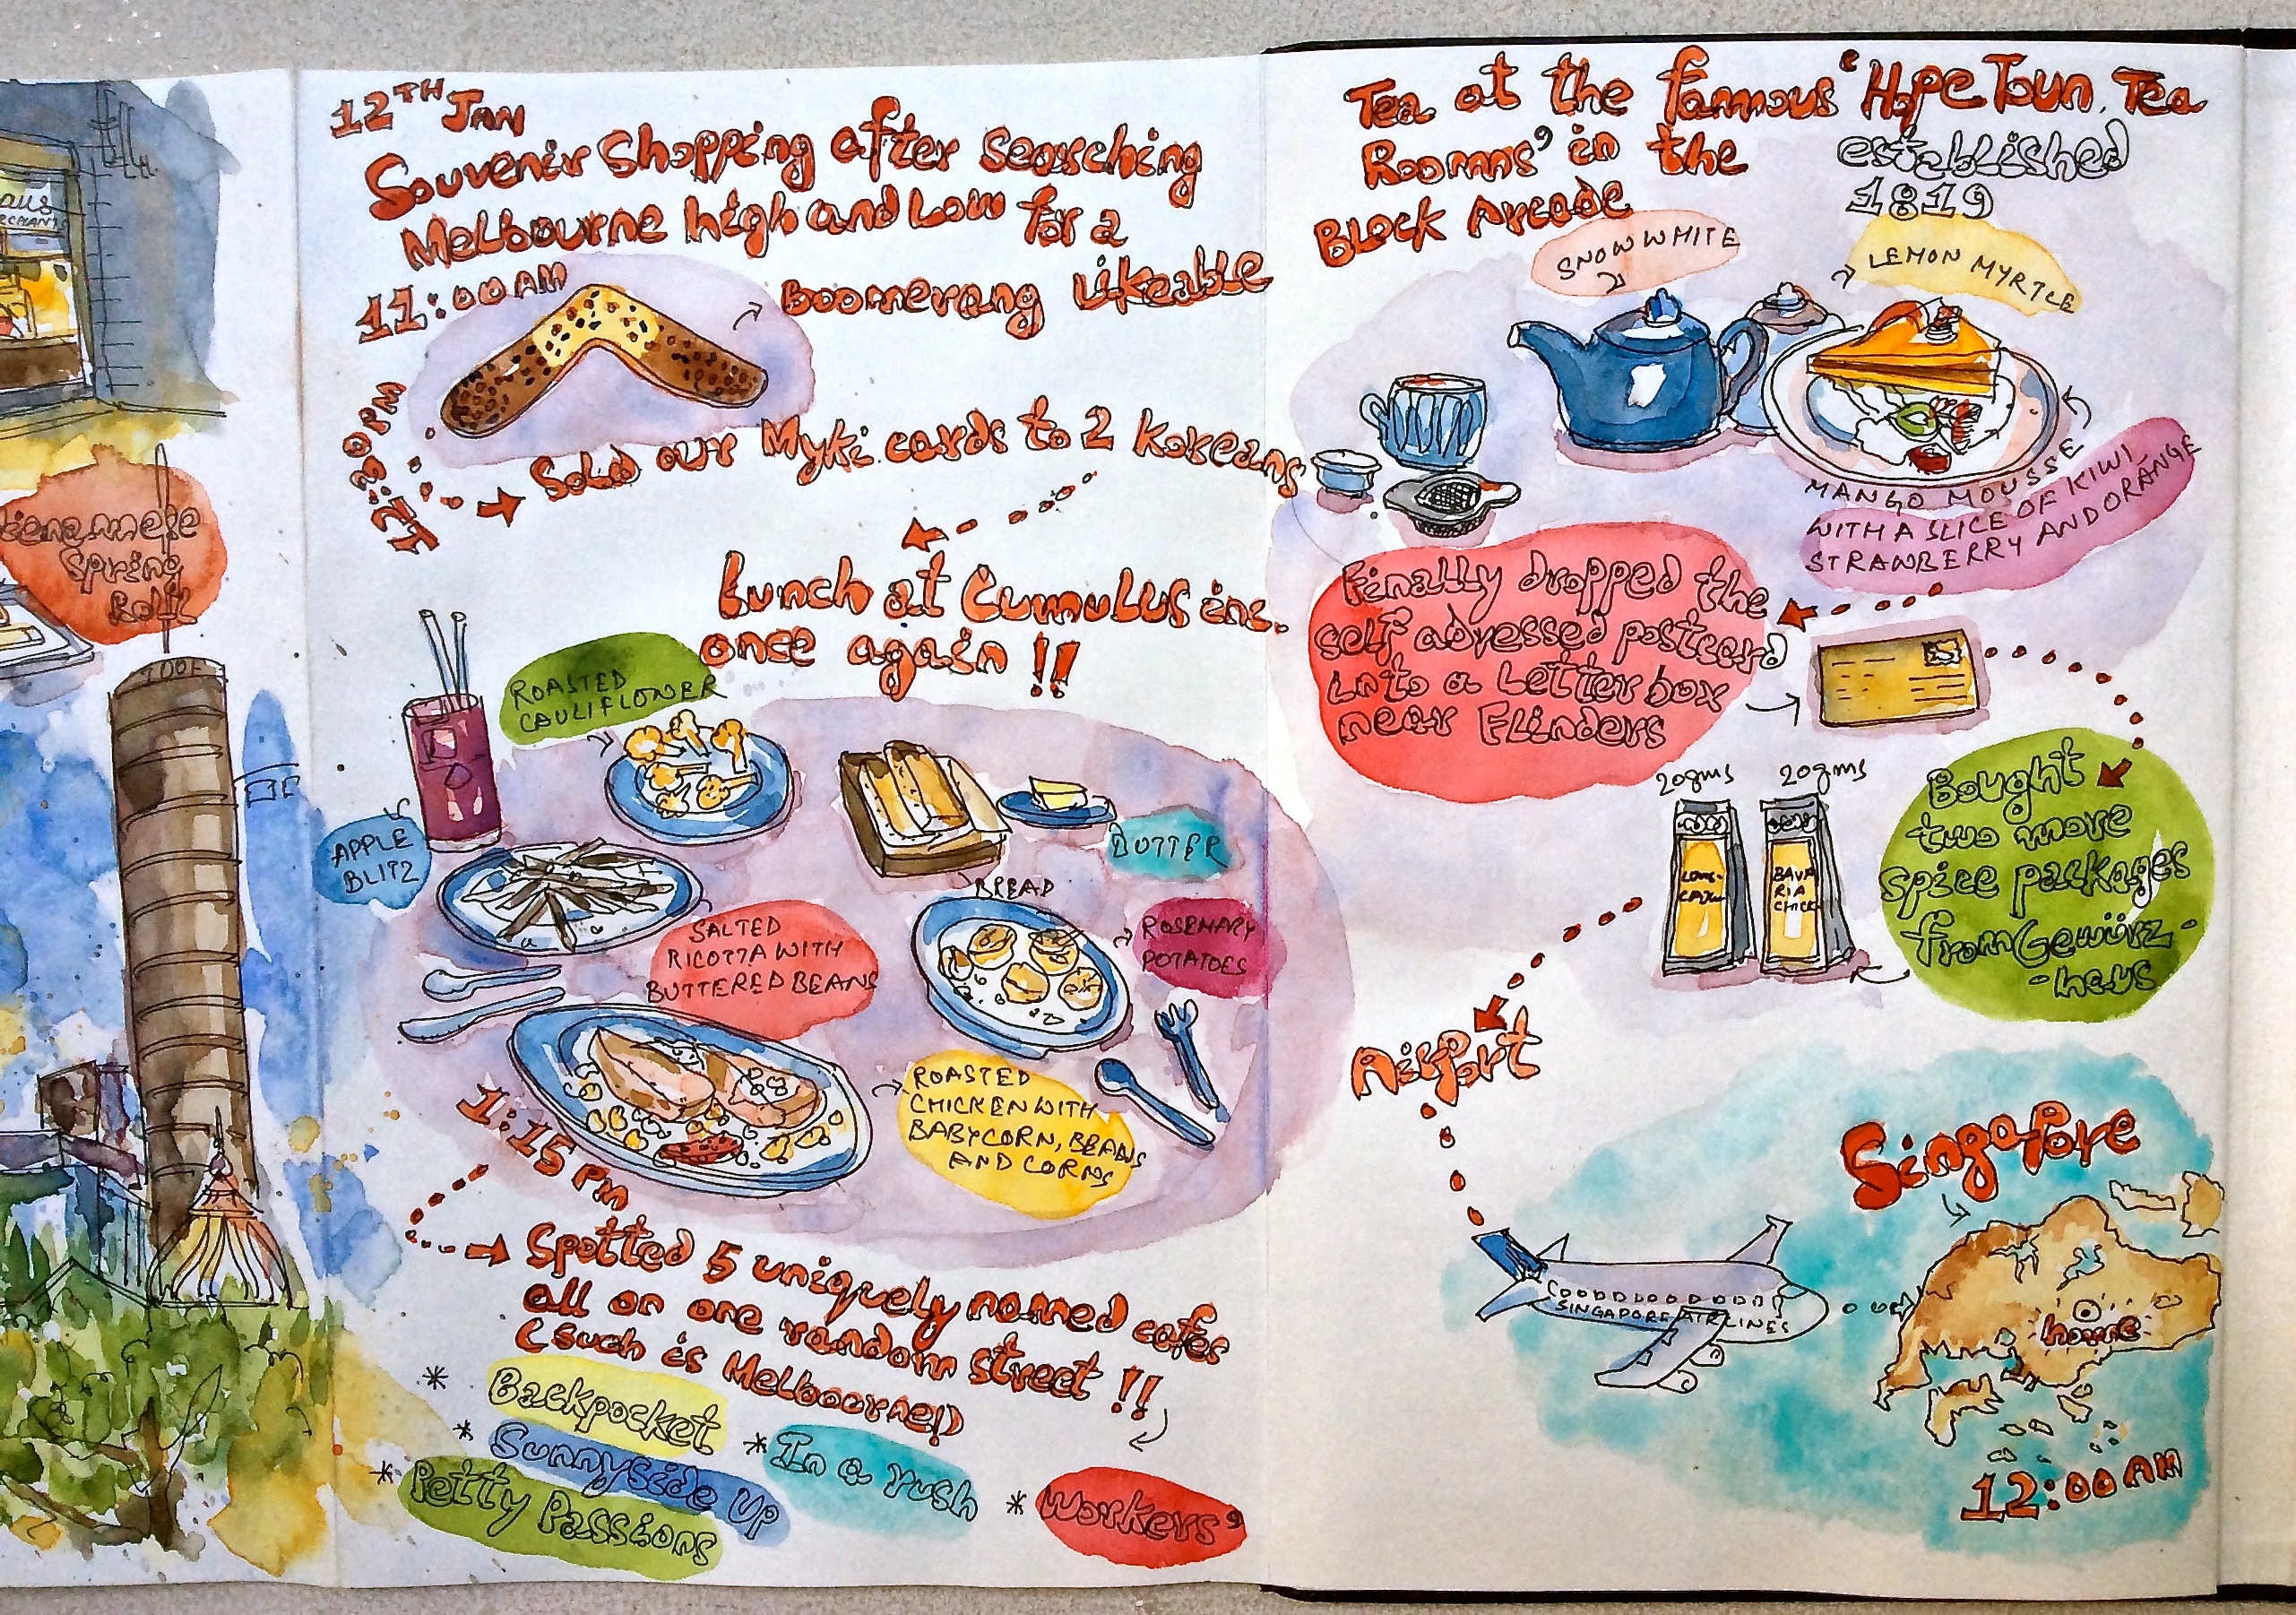 Spring
12TH JAN
Souvenir Shopping after searching
Melbourne high and low for a
11:00 AM
Boomerang Likeable
12:30 PM
Sold our Myki cards to 2 Koreans
Lunch at Cumulus inc.
once again !!
ROASTED
CAULIFLOWER
APPLE
BLITZ
BUTTER
BREAD
SALTED
RICOTTA WITH
BUTTERED BEANS
ROSEMARY
POTATOES
ROASTED
CHICKEN WITH
BABYCORN, BEANS
AND CORNS
1:15 PM
Spotted 5 uniquely named cafes
all on one random street !!
(such is Melbourne!)
* Backpocket
* Sunnyside Up
* Petty Passions
* In a rush
* Workers'
Tea at the famous 'Hope Toun Tea
Rooms' in the
Block Arcade
established
1819
SNOW WHITE
LEMON MYRTLE
MANGO MOUSSE
WITH A SLICE OF KIWI
STRAWBERRY AND ORANGE
Finally dropped the
self adressed postcard
into a letter box
near Flinders
20gms
20gms
BAVA
RIA
CHICK
Bought
two more
spice packages
from Gewürz-
-haus
Airport
SINGAPORE AIRLINES
Singapore
home
12:00 AM